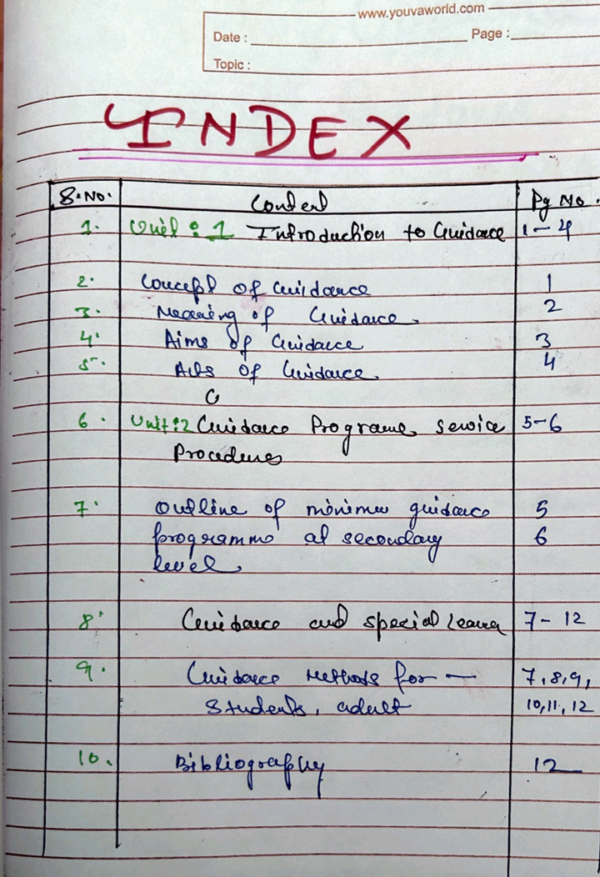 www.youvaworld.com
Date : Page :
Topic :
INDEX
S.No. Content Pg No.
1. Unit : 1 Introduction to Guidance 1-4
2. Concept of Guidance 1
3. Meaning of Guidance 2
4. Aims of Guidance 3
5. of Guidance 4
6. Unit:2 Guidance Programe service 5-6
Procedures
7. Outline of guidance 5
programme at secondary 6
level
8. Guidance and special 7-12
9. Guidance methods for — 7,8,9,
Students, adult 10,11,12
10. Bibliography 12